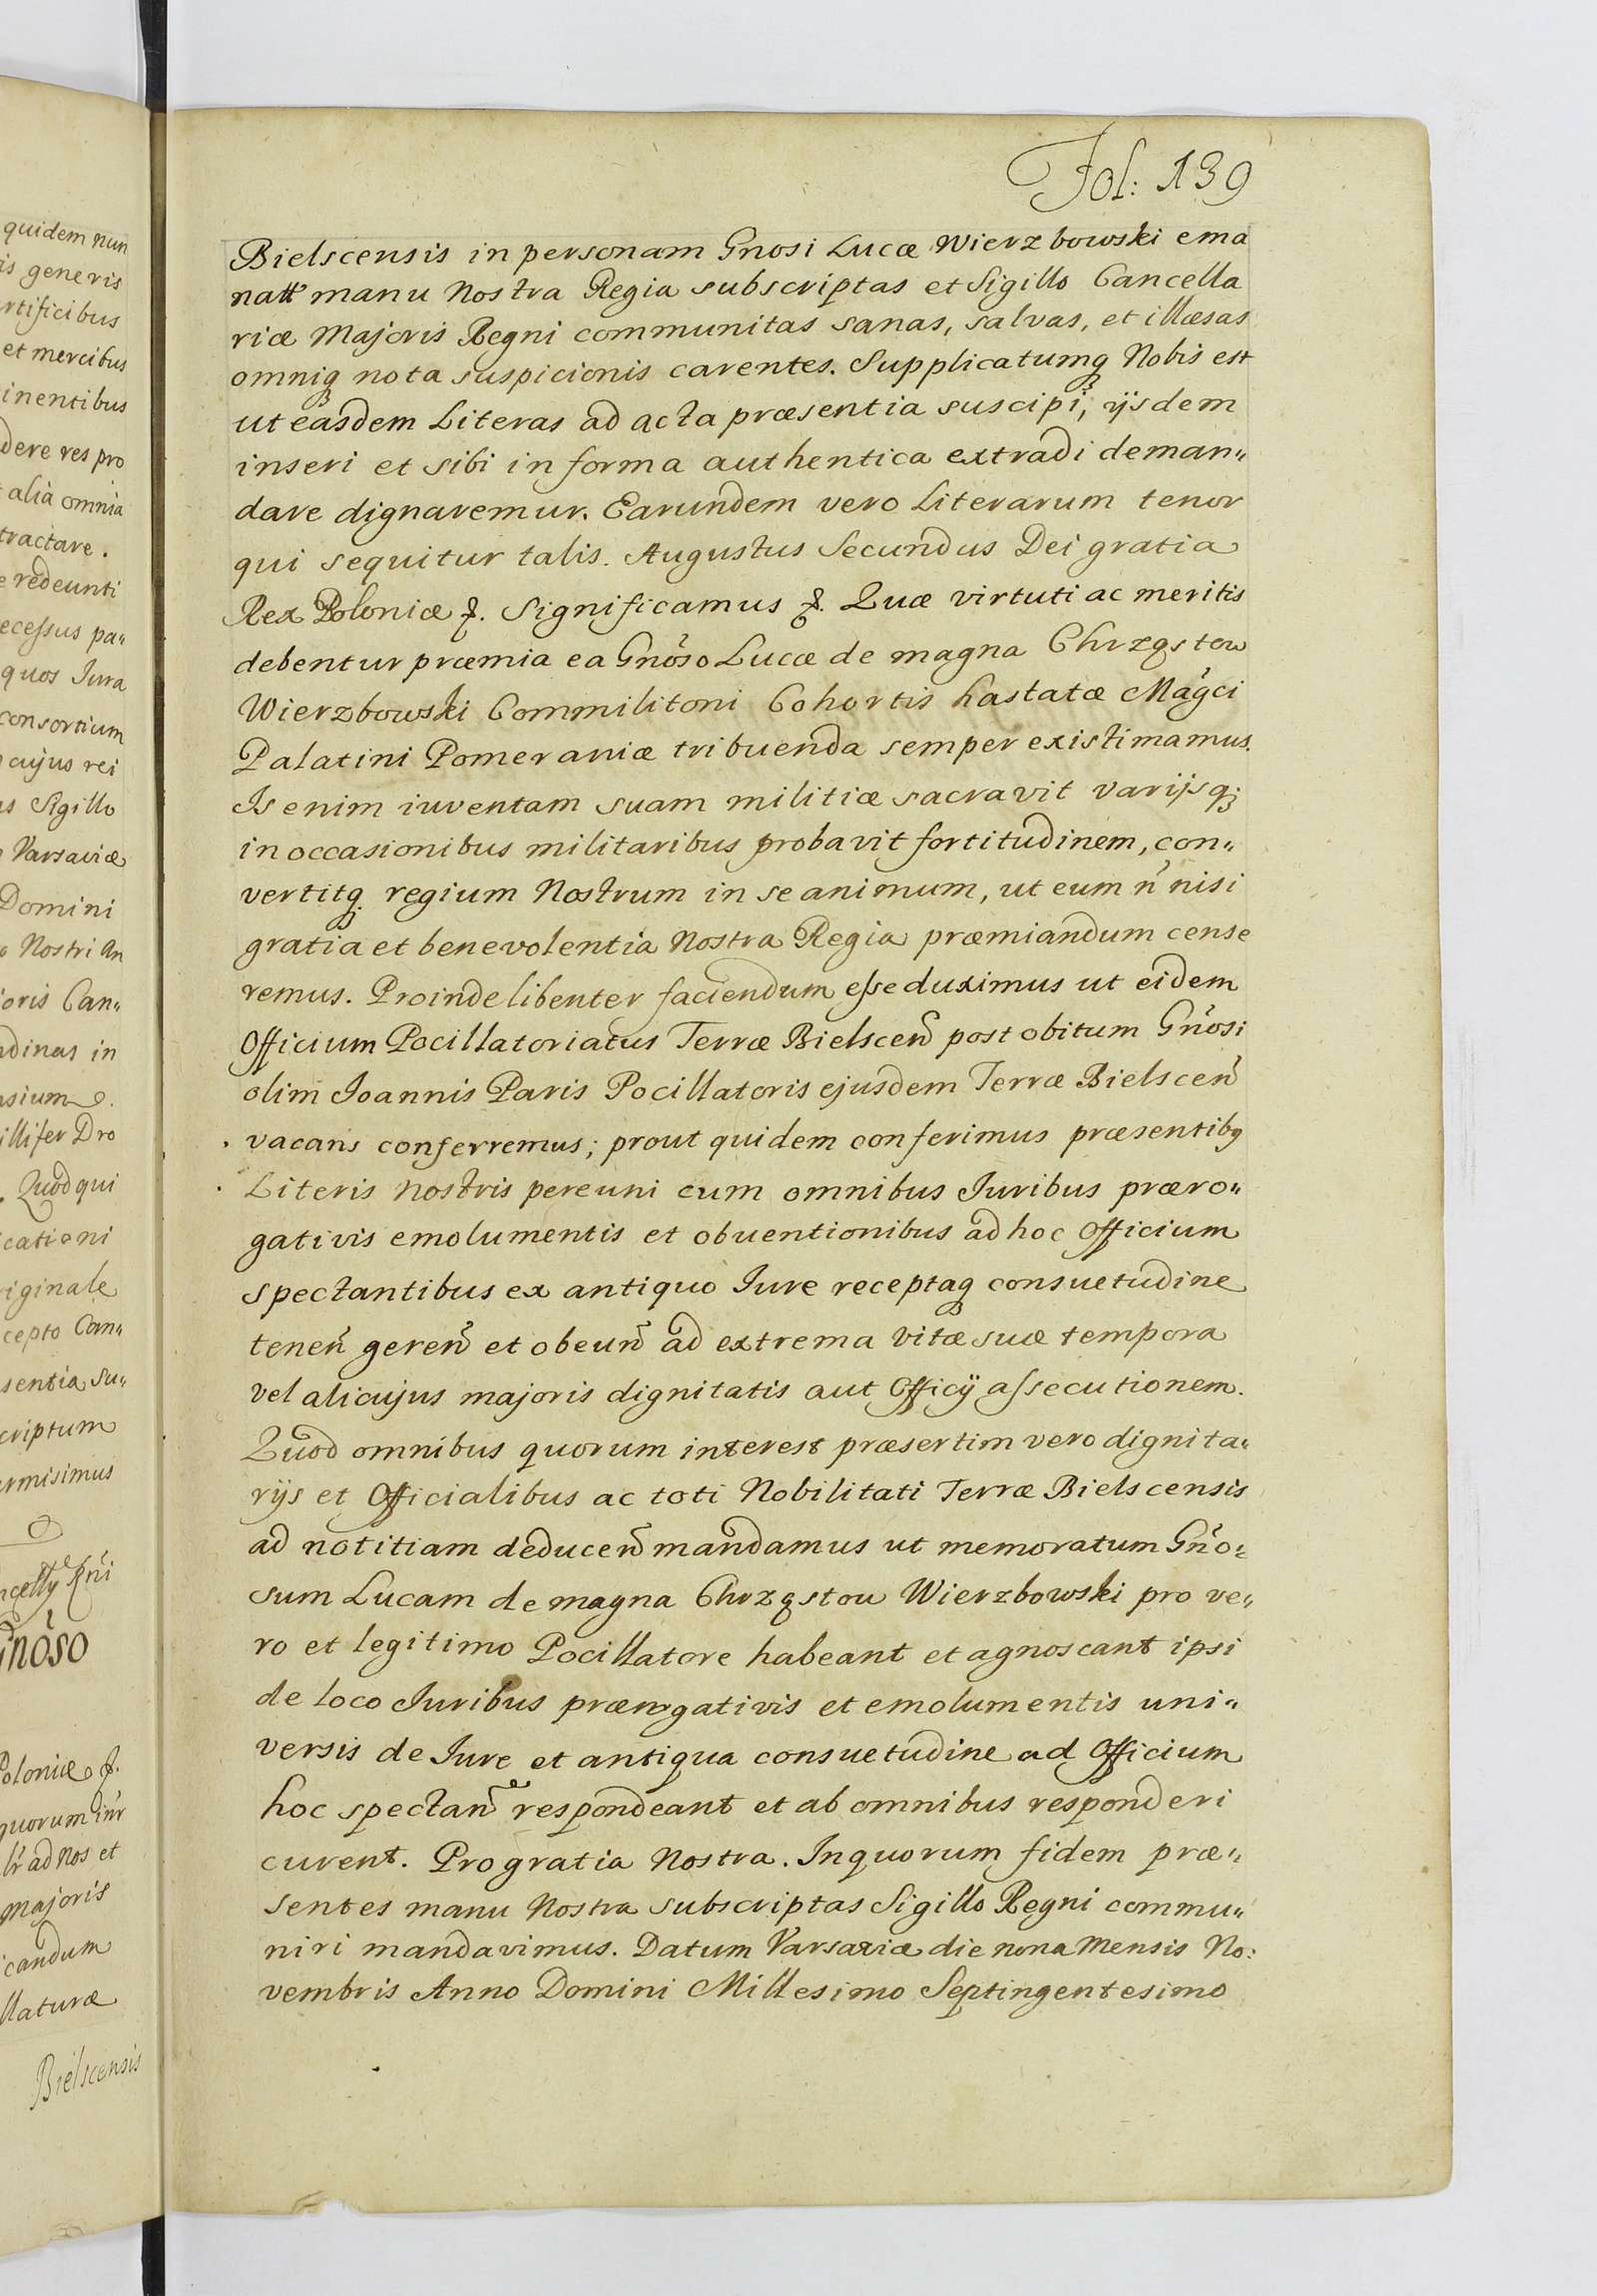 quidem nun
is generis
rtificibus
et mercibus
inentibus
dere res pro
alia omnia
tractare.
e redeunti
ecessus pa„
quos Jura
consortium
cujus rei
us Sigillo
Varsaviæ
Domini
Nostri An
joris Can„
dinas in
sium
illifer Dro
. Quod qui
cationi
riginale
cepto Can„
sentia su„
criptum
ermisimus
Gnõso
Poloniæ &.
quorum inr̃
lr̃ ad Nos et
majoris
icandum
llaturæ
Bielscensis
Fol: 139
Bielscensis in personam Gnosi Lucæ Wierzbowski ema
natt manu Nostra Regia subscriptas et Sigillo Cancella
riæ Majoris Regni communitas sanas, salvas, et illæsas
omniq nota suspicionis carentes. Supplicatumq Nobis est
ut easdem Literas ad acta præsentia suscipi, ijsdem
inseri et sibi in forma authentica extradi deman„
dare dignaremur. Earundem vero Literarum tenor
qui sequitur talis. Augustus Secundus Dei gratia
Rex Poloniæ &. Significamus &. Quæ virtuti ac meritis
debentur præmia ea Gnõso Lucæ de magna Chrząstow
Wierzbowski Commilitoni Cohortis hastatæ Mãgci
Palatini Pomeraniæ tribuenda semper existimamus.
Is enim iuventam suam militiæ sacravit varijsq;
in occasionibus militaribus probavit fortitudinem, con„
vertitq. regium Nostrum in se animum, ut eum ñ nisi
gratia et benevolentia Nostra Regia præmiandum cense
remus. Proinde libenter faciendum esse duximus ut eidem
Officium Pocillatoriatus Terræ Bielsceñ post obitum Gñosi
olim Joannis Paris Pocillatoris ejusdem Terræ Bielsceñ
vacans conferremus; prout quidem conferimus præsentibq
Literis nostris pereuni cum omnibus Juribus præro„
gativis emolumentis et obuentionibus ad hoc Officium
spectantibus ex antiquo Jure receptaq consuetudine
teneñ gereñ et obeuñ ad extrema vitæ suæ tempora
vel alicujus majoris dignitatis aut Officij assecutionem.
Quod omnibus quorum interest præsertim vero dignita„
rijs et Officialibus ac toti Nobilitati Terræ Bielscensis
ad notitiam deduceñ mandamus ut memoratum Gño„
sum Lucam de magna Chrząstou Wierzbowski pro ve„
ro et legitimo Pocillatore habeant et agnoscant ipsi
de loco Juribus prærogativis et emolumentis uni„
versis de Jure et antiqua consuetudine ad Officium
hoc spectañ respondeant et ab omnibus responderi
curent. Pro gratia Nostra. In quorum fidem præ„
sentes manu Nostra subscriptas Sigillo Regni commu„
niri mandavimus. Datum Varsaviæ die nona Mensis No:
vembris Anno Domini Millesimo Septingentesimo